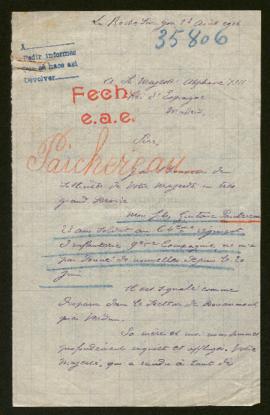 La Roche sur Yon 1er Août 1916
35806
A
Pedir informes
que se hace así
Devolver
A Sa Majesté Alphonse XIII
Roi d'Espagne
Madrid
Fech.
e.a.e.
Sire,
Paichereau
J'ai l'honneur de
solliciter de Votre Majesté un très
grand service
Mon fils Gustave Paichereau
23 ans soldat au 64ème régiment
d'infanterie 9ème Compagnie ne m'a
pas donné de nouvelles depuis le 20
Juin
Il est signalé comme
disparu dans le secteur de Douaumont
près Verdun.
Sa mère et moi sommes
profondément inquiets et affligés. Votre
Majesté, qui a rendu à tant de